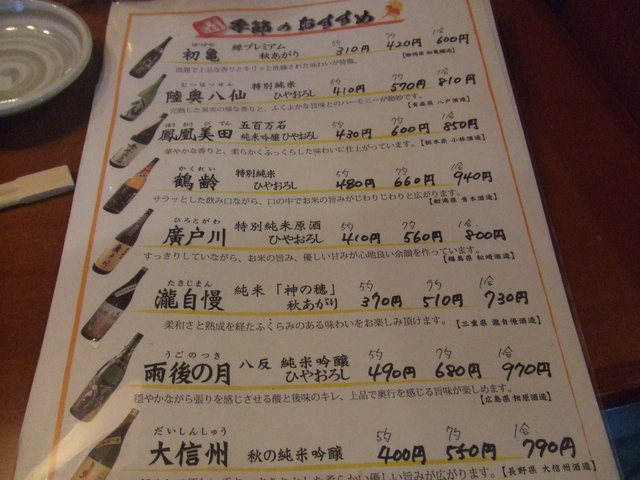 季節のおすすめ
はつかめ
初亀 縁プレミアム 秋あがり 5勺 310円 7勺 420円 1合 600円
【静岡県 初亀醸造】
むつはっせん
陸奥八仙 特別純米 ひやおろし 5勺 410円 7勺 570円 1合 810円
完熟した果実の様な香りと、ふくよかな旨味とのハーモニーが絶妙です。
【青森県 八戸酒造】
ほうおうびでん
鳳凰美田 五百万石 純米吟醸ひやおろし 5勺 430円 7勺 600円 1合 850円
華やかな香りと、柔らかくふっくらした味わいに仕上がっています。
【栃木県 小林酒造】
かくれい
鶴齢 特別純米 ひやおろし 5勺 480円 7勺 660円 1合 940円
サラッとした飲み口ながら、口の中でお米の旨みがじわりじわりと広がります。
【新潟県 青木酒造】
ひろとがわ
廣戸川 特別純米原酒 ひやおろし 5勺 410円 7勺 560円 1合 800円
すっきりしていながら、お米の旨み、優しい甘みが心地良い余韻を作っています。
【福島県 松崎酒造】
たきじまん
瀧自慢 純米「神の穂」 秋あがり 5勺 370円 7勺 510円 1合 730円
柔和さと熟成を経たふくらみのある味わいをお楽しみ頂けます。
【三重県 瀧自慢酒造】
うごのつき
雨後の月 八反 純米吟醸 ひやおろし 5勺 490円 7勺 680円 1合 970円
穏やかながら張りを感じさせる酸と後味のキレ、上品で奥行を感じる旨味が楽しめます。
【広島県 相原酒造】
だいしんしゅう
大信州 秋の純米吟醸 5勺 400円 7勺 550円 1合 790円
柔らかい優しい旨みが広がります。
【長野県 大信州酒造】